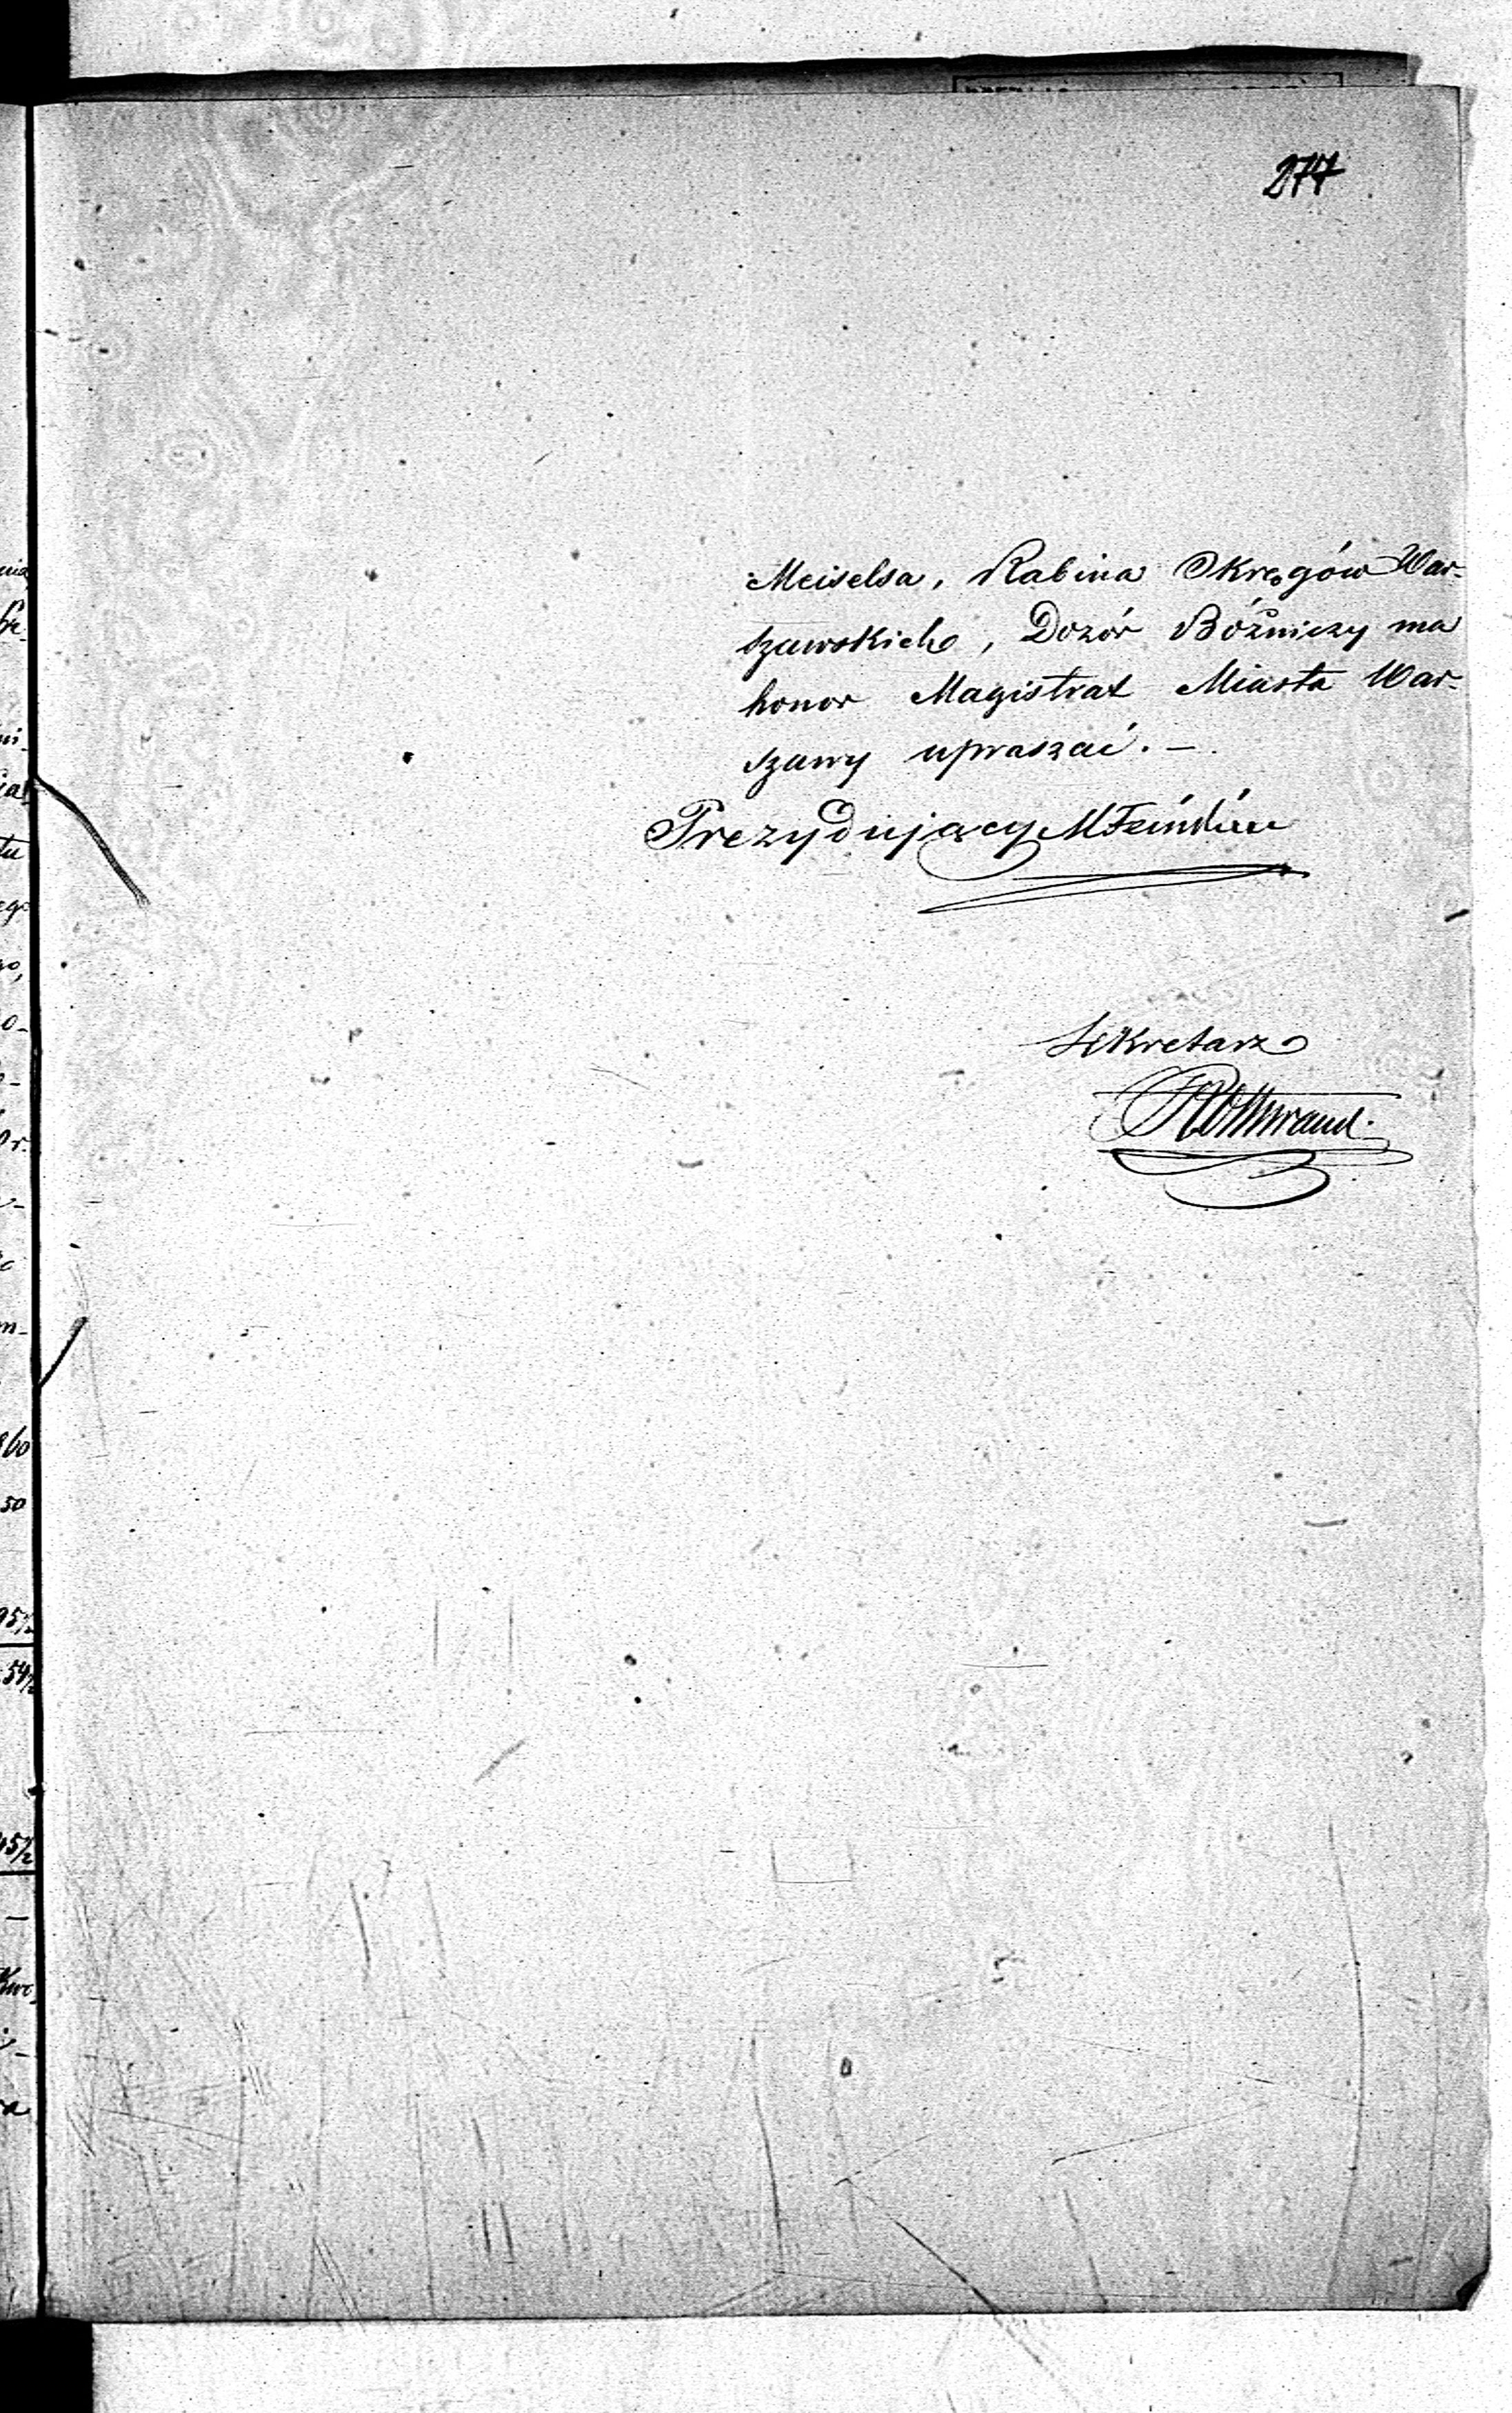 277
Meiselsa, Rabina Okręgów War-
szawskich, Dozór Bóżniczy ma
honor Magistrat Miasta War-
szawy upraszać. —
Prezydujący M Feinkind
Sekretarz